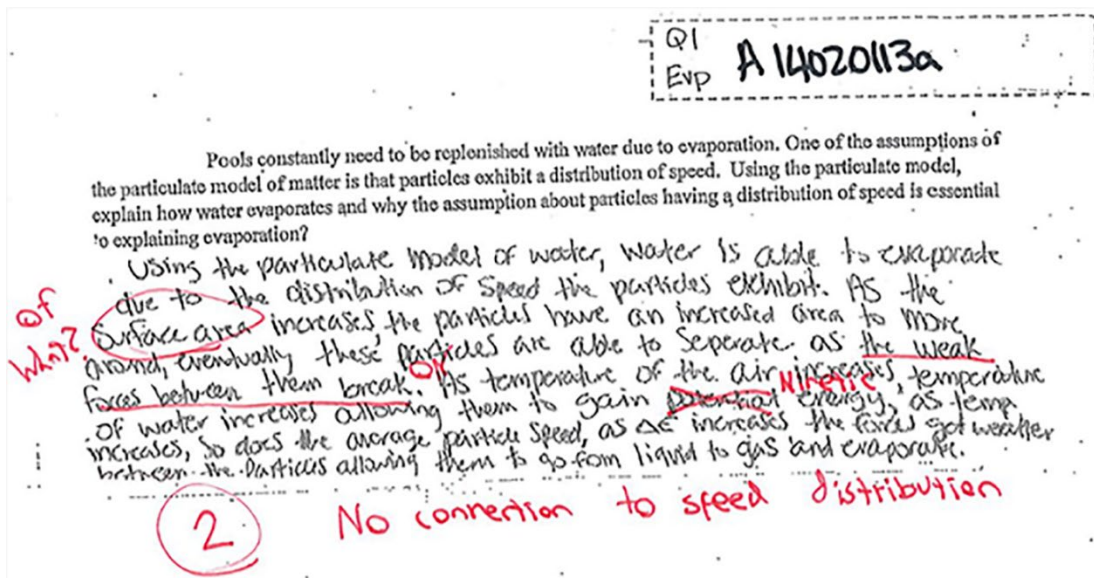 Q1
Evp A14020113a
Pools constantly need to be replenished with water due to evaporation. One of the assumptions of
the particulate model of matter is that particles exhibit a distribution of speed. Using the particulate model,
explain how water evaporates and why the assumption about particles having a distribution of speed is essential
to explaining evaporation?
Using the particulate model of water, water is able to evaporate
due to the distribution of speed the particles exhibit. As the
Surface area increases the particles have an increased area to move
around, eventually these particles are able to seperate as the weak
forces between them break. As temperature of the air increases, temperature
of water increases allowing them to gain potential energy, as temp
increases, so does the average particle speed, as ΔE increases the forces get weaker
between the Particles allowing them to go from liquid to gas and evaporate.
of
what?
OK
Kinetic
2
No connection to speed distribution